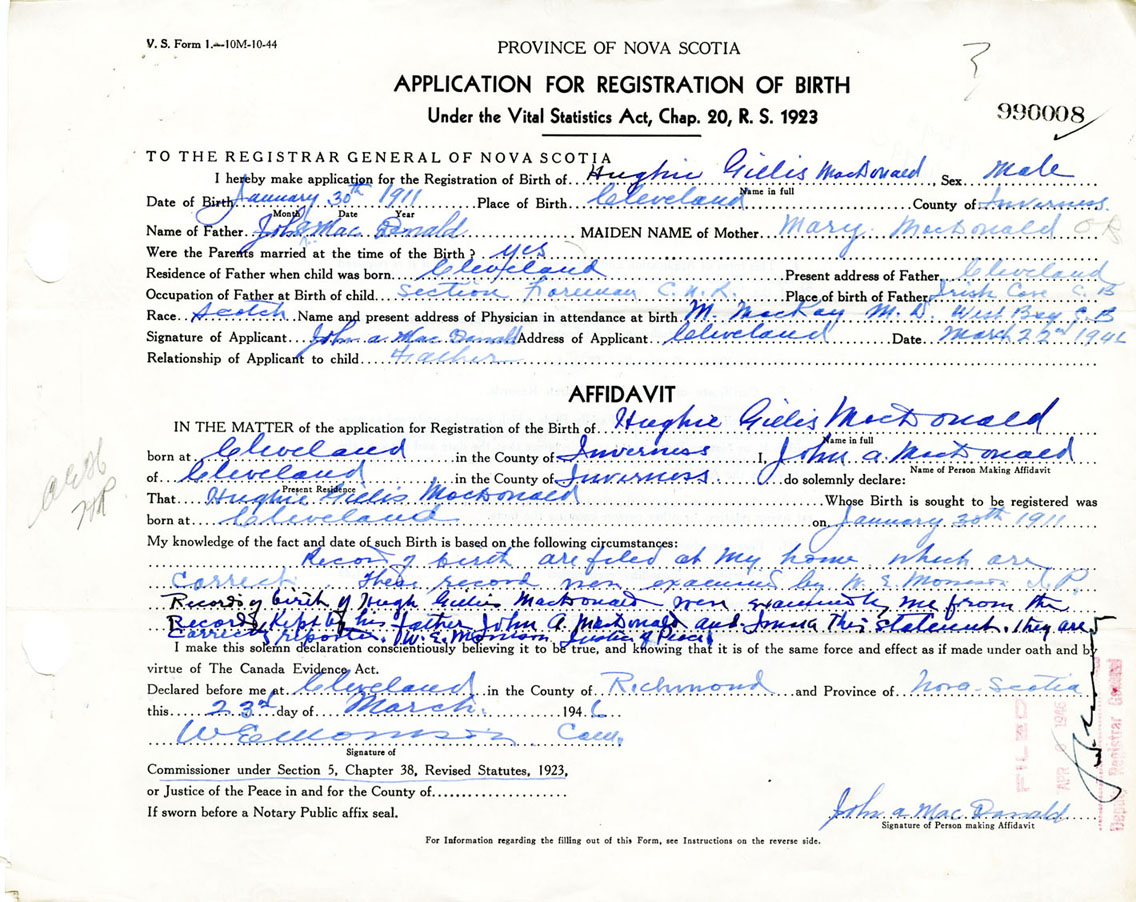 V. S. Form 1.—10M-10-44
PROVINCE OF NOVA SCOTIA
APPLICATION FOR REGISTRATION OF BIRTH
Under the Vital Statistics Act, Chap. 20, R. S. 1923
990008
TO THE REGISTRAR GENERAL OF NOVA SCOTIA
I hereby make application for the Registration of Birth of Hughie Gillis MacDonald, Sex Male
Name in full
Date of Birth January 30th 1911 Place of Birth Cleveland County of Inverness
Month Date Year
Name of Father John MacDonald MAIDEN NAME of Mother Mary MacDonald
Were the Parents married at the time of the Birth? yes
Residence of Father when child was born Cleveland Present address of Father Cleveland
Occupation of Father at Birth of child Section Foreman C.N.R. Place of birth of Father Irish Cove C.B
Race Scotch Name and present address of Physician in attendance at birth M. MacKay M.D West Bay C.B
Signature of Applicant John A MacDonald Address of Applicant Cleveland Date March 22nd 194
Relationship of Applicant to child Father
AFFIDAVIT
IN THE MATTER of the application for Registration of the Birth of Hughie Gillis MacDonald
Name in full
born at Cleveland in the County of Inverness I, John A MacDonald
Name of Person Making Affidavit
of Cleveland in the County of Inverness do solemnly declare:
Present Residence
That Hughie Gillis MacDonald Whose Birth is sought to be registered was
born at Cleveland on January 30th 1911
My knowledge of the fact and date of such Birth is based on the following circumstances:
Record of birth are filed at my home which are
Correct. These record were examined by W. E. Morrison J.P.
Records of birth of Hugh Gillis MacDonald were examined by me from the
Records kept by his Father John A. MacDonald and this statement. They are
Correctly reported. W. E. Morrison Justice of Peace
I make this solemn declaration conscientiously believing it to be true, and knowing that it is of the same force and effect as if made under oath and by
virtue of The Canada Evidence Act.
Declared before me at Cleveland in the County of Richmond and Province of Nova-Scotia
this 23rd day of March 1946
W E Morrison Com.
Signature of
Commissioner under Section 5, Chapter 38, Revised Statutes, 1923,
or Justice of the Peace in and for the County of
If sworn before a Notary Public affix seal.
John A MacDonald
Signature of Person making Affidavit
For Information regarding the filling out of this Form, see Instructions on the reverse side.
FILED
APR 1946
Deputy Registrar General